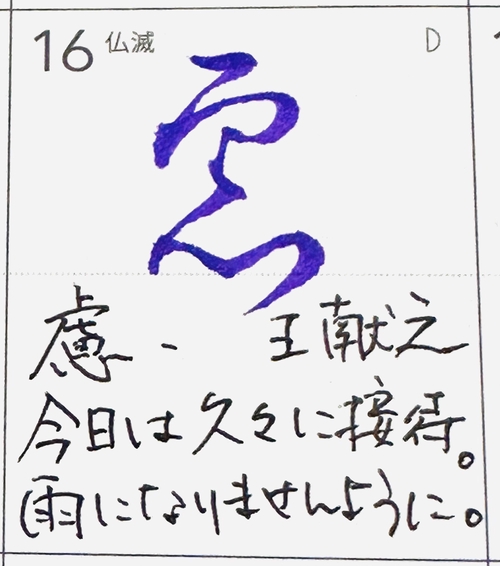 16 仏滅 D
慮
慮- 王献之
今日は久々に接待。
雨になりませんように。